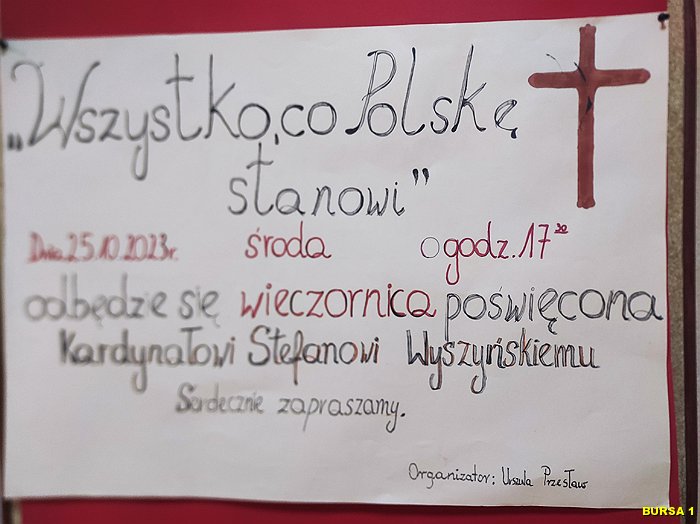 „Wszystko, co Polskę
stanowi”
Dnia 25.10.2023r. środa o godz. 17³⁰
odbędzie się wieczornica poświęcona
Kardynałowi Stefanowi Wyszyńskiemu
Serdecznie zapraszamy.
Organizator: Urszula Przesław
BURSA 1